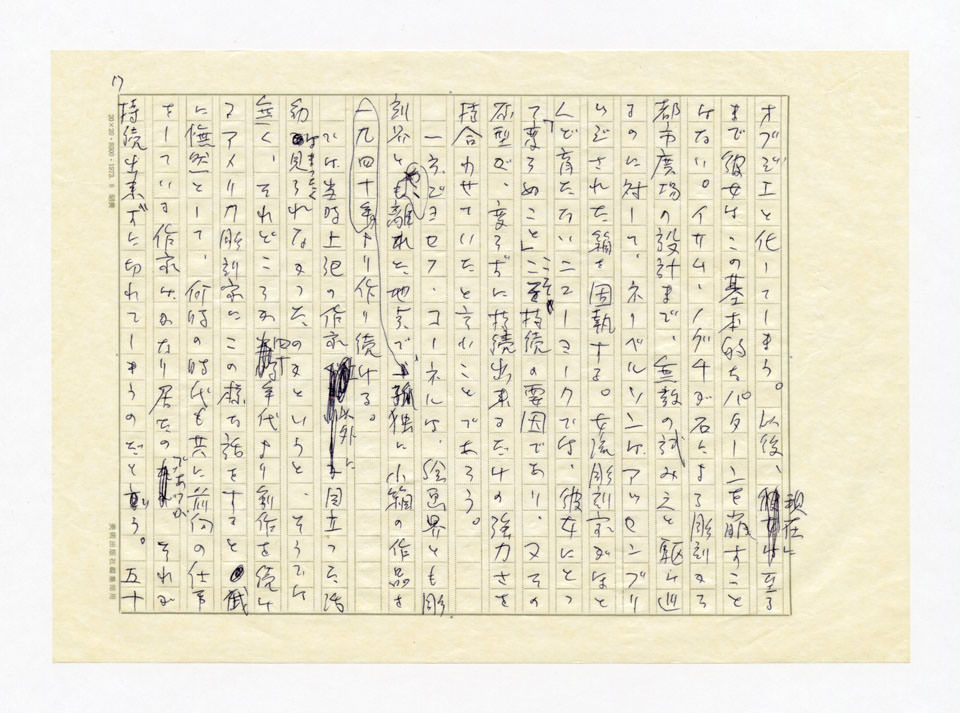 17
オブジェと化してしまう。以後、現在に至る
まで彼女はこの基本的なパターンを崩すこと
はない。イサム・ノグチが石による彫刻から
都市広場の設計まで、無数の試みえと駆け巡
るのに対して、ネーベルソンはアッセンブリ
いじされた箱を固執する。女流彫刻家がほと
んど育たないニューヨークでは、彼女にとっ
て「変らぬこと」こそ持続の要因であり、又その
原型が、変らずに持続出来るだけの強力さを
持合わせていたと言うことであろう。
一方、ジョセフ・コーネルは、絵画界とも彫
刻界とも離れた地点で、孤独に小箱の作品を
一九四十年より作り続ける。
では当時上記の作家以外に目立った活
動はまったく見られなかったのかというと、そうでは
無く、それどころか四十年代より創作を続け
るアメリカ彫刻家にこの様な話をすると
に憮然として、何時の時代も共に前向の仕事
をしている作家はかなり居たのであるが、それが
持続出来ずに切れてしまうのだと言う。五十
20×20・
東